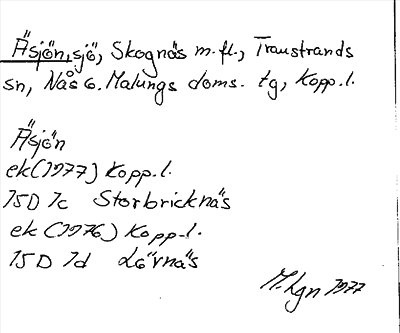 Äsjön, sjö, Skognäs m.fl., Transtrands
sn, Nås o. Malungs doms. tg, Kopp.l.
Äsjön
ek (1977) Kopp.l.
15D 7c Storbricknäs
ek (1976) Kopp.l.
15D 7d Lövnäs
M.Lgn 1977